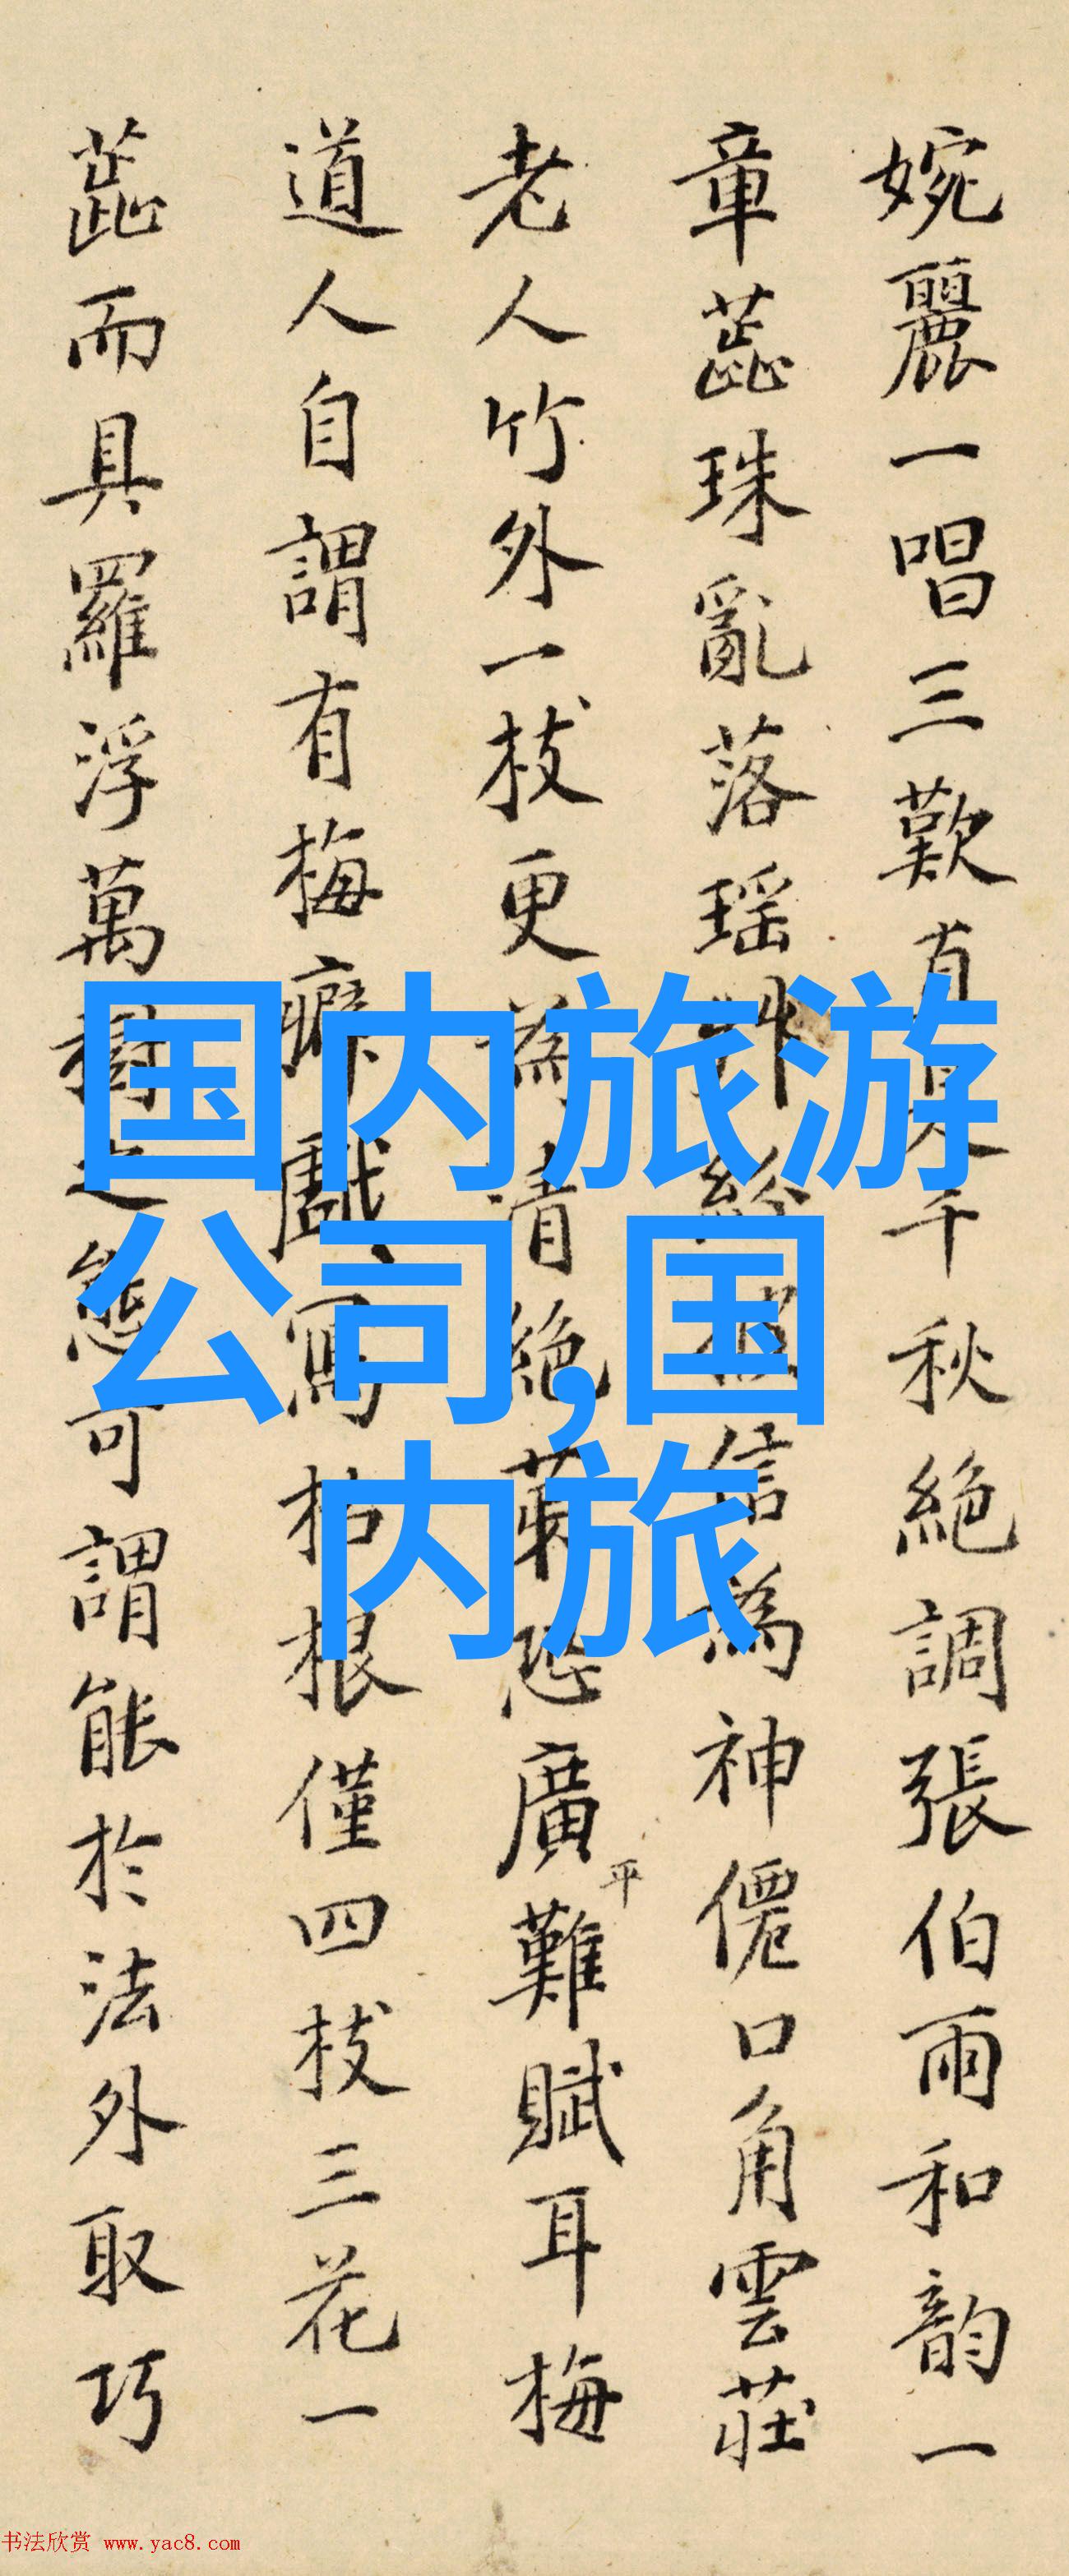 婉麗一唱三歎有是千秋絕調張伯雨和韵一
章蕋珠亂落瑶紛信為神僊口角雲莊
老人竹外一枝更為清絕苐恐廣平難賦耳梅
道人自謂有梅癖戲寫枯根僅四枝三花一
蕋而具羅浮萬樹之態可謂能於法外取巧
国内旅游
公司,国
内旅
书法欣赏 www.yac8.com